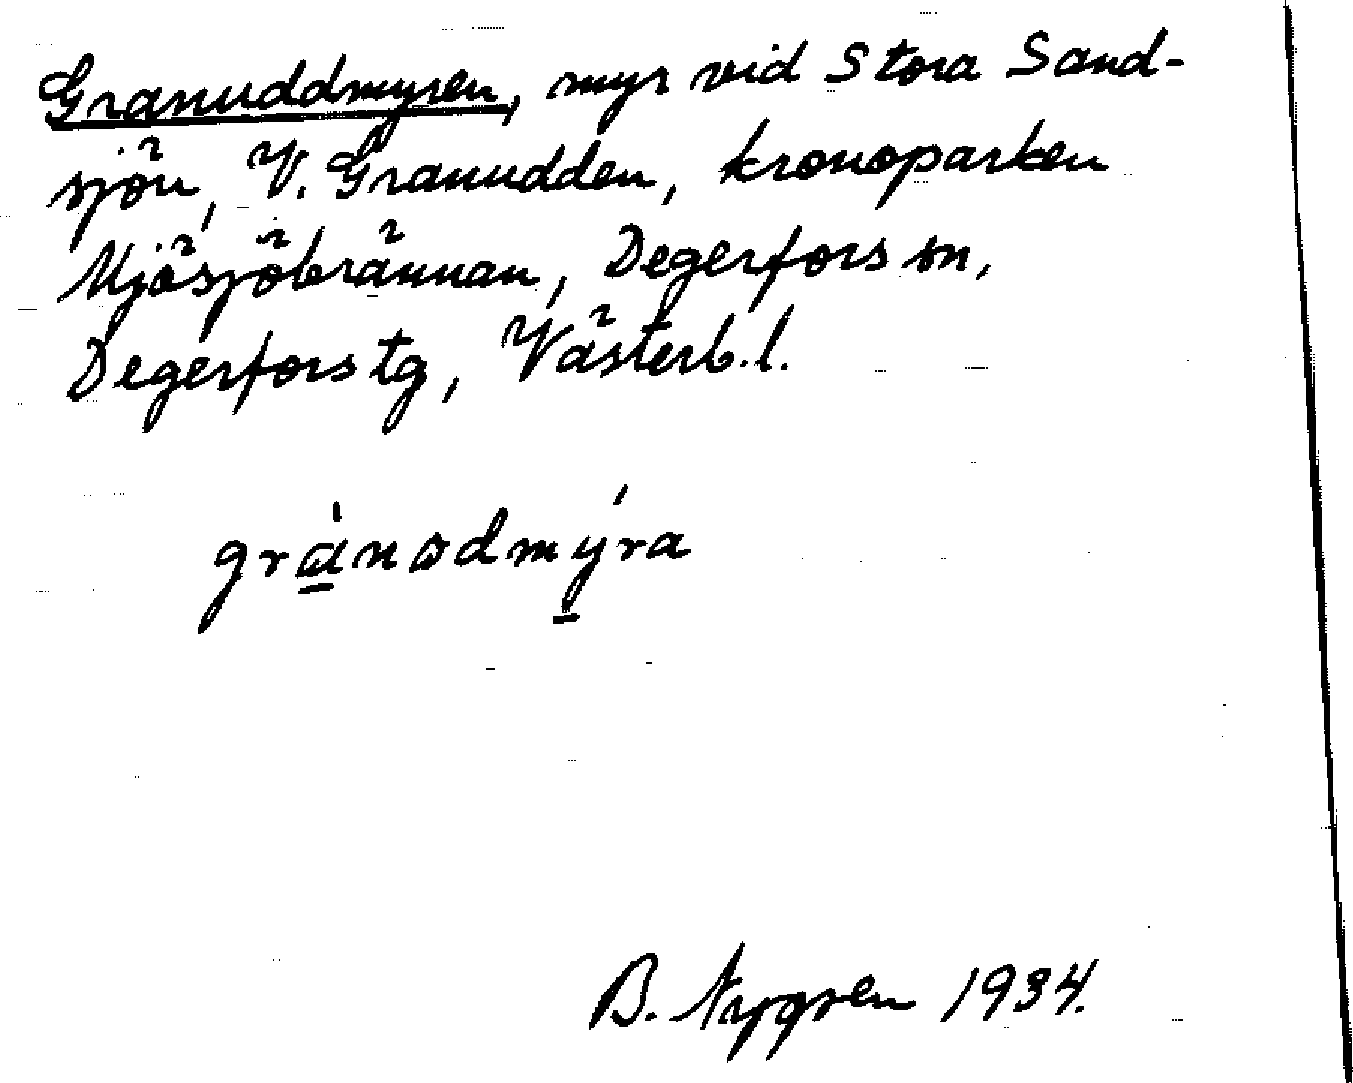 Granuddmyren, myr vid Stora Sand-
sjön, V. Granudden, kronoparken
Mjösjöbrännan, Degerfors sn,
Degerfors tg, Västerb. l.
grànodmýra
B. Nygren 1934.